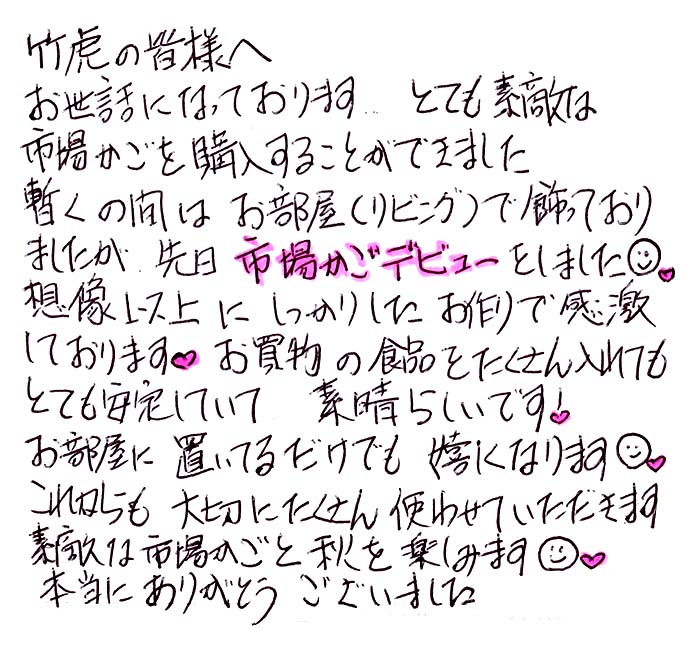 竹虎の皆様へ
お世話になっております とても素敵な
市場かごを購入することができました
暫くの間は お部屋(リビング)で飾っており
ましたが 先日 市場かごデビューをしました
想像以上に しっかりした お作りで感激
しております お買物の食品をたくさん入れても
とても安定していて 素晴らしいです!
お部屋に 置いてるだけでも 嬉しくなります
これからも 大切にたくさん使わせていただきます
素敵な市場かごと秋を楽しみます
本当にありがとう ございました